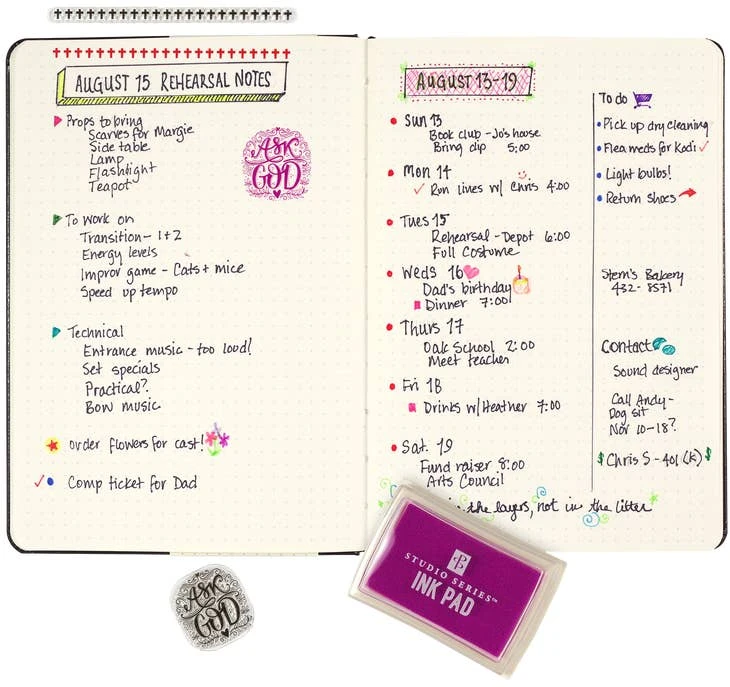 AUGUST 15 REHEARSAL NOTES
Props to bring
Scarves for Margie
Side table
Lamp
Flashlight
Teapot
ASK
GOD
To work on
Transition - 1+2
Energy levels
Improv game - Cats + mice
Speed up tempo
Technical
Entrance music - too loud!
Set specials
Practical?
Bow music
order flowers for cast!
Comp ticket for Dad
AUGUST 13-19
Sun 13
Book club - Jo's house
Bring dip 5:00
Mon 14
Run lines w/ Chris 4:00
Tues 15
Rehearsal - Depot 6:00
Full Costume
Weds 16
Dad's birthday
Dinner 7:00
Thurs 17
Oak School 2:00
Meet teacher
Fri 18
Drinks w/ Heather 7:00
Sat. 19
Fund raiser 8:00
Arts Council
the layers, not in the litter
To do
Pick up dry cleaning
Flea meds for Kodi
Light bulbs!
Return shoes
Stern's Bakery
432-8571
Contact
Sound designer
Call Andy -
Dog sit
Nov 10-18?
$ Chris S - 401(k) $
ASK
GOD
STUDIO SERIES™
INK PAD